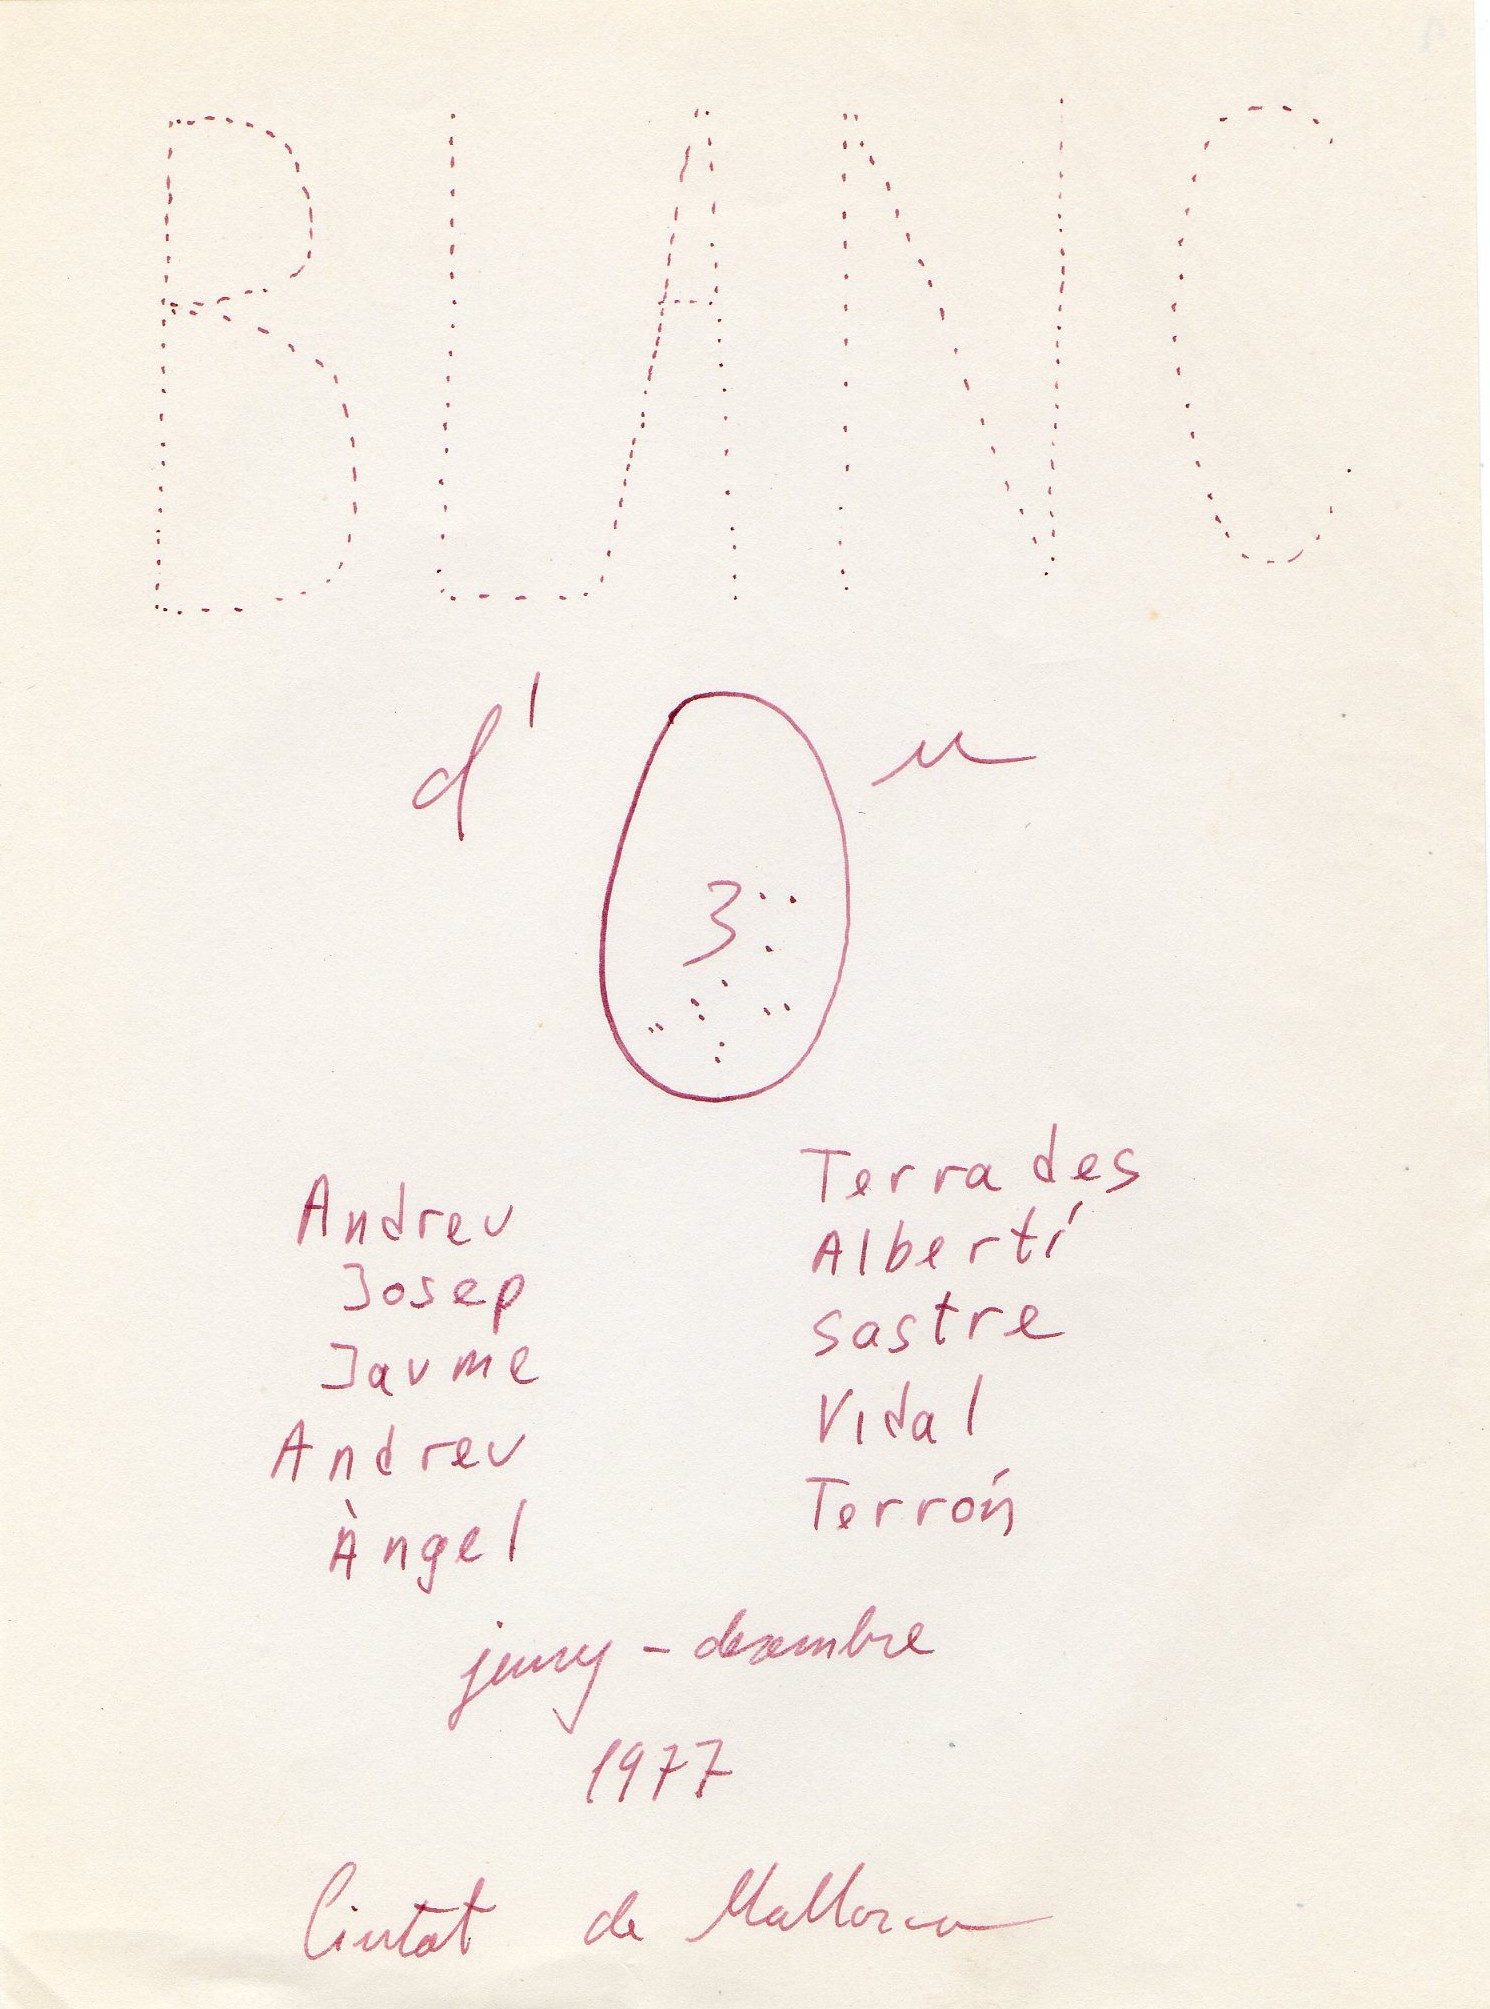 BLANC
d'Ou
3
Andreu Terrades
Josep Albertí
Jaume Sastre
Andreu Vidal
Àngel Terrón
juny - desembre
1977
Ciutat de Mallorca